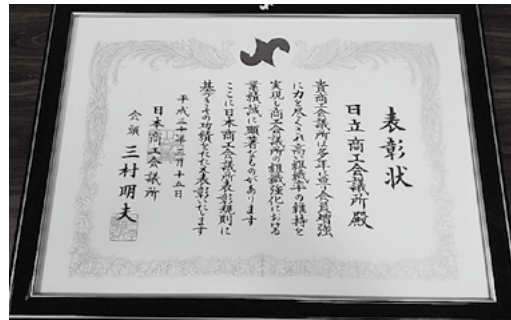 表彰状
日立商工会議所殿
貴商工会議所は多年に亘り会員増強
に力を尽くされ高い組織率の維持を
実現し商工会議所の組織強化における
業績誠に顕著なものがあります
ここに日本商工会議所表彰規則に
基づきその功績をたたえ表彰いたします
平成三十年三月十五日
日本商工会議所
会頭 三村明夫